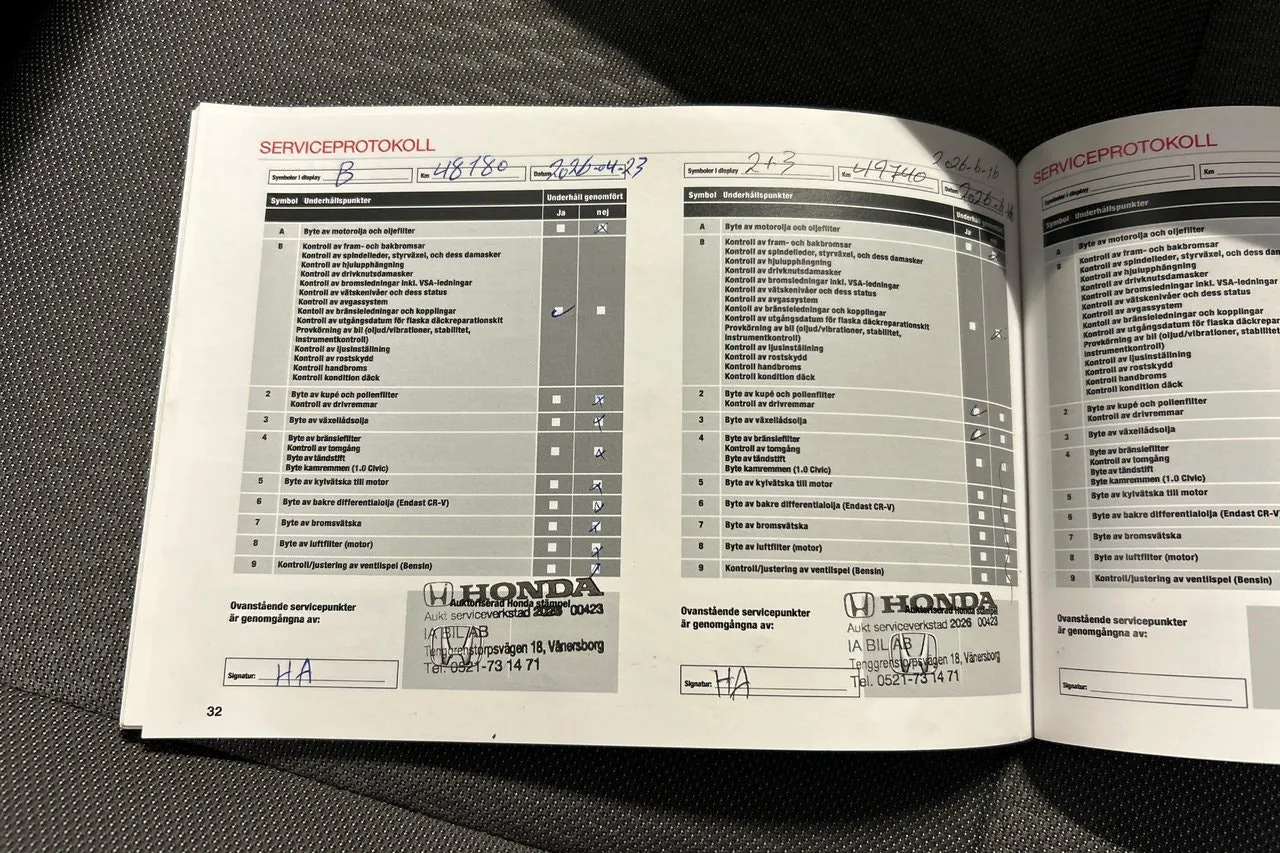 SERVICEPROTOKOLL
Symboler i display B Km 48180 Datum 2026-04-23
Symbol Underhållspunkter Underhåll genomfört
Ja nej
A Byte av motorolja och oljefilter
B Kontroll av fram- och bakbromsar
Kontroll av spindelleder, styrväxel, och dess damasker
Kontroll av hjulupphängning
Kontroll av drivknutsdamasker
Kontroll av bromsledningar inkl. VSA-ledningar
Kontroll av vätskenivåer och dess status
Kontroll av avgassystem
Kontoll av bränsleledningar och kopplingar
Kontroll av utgångsdatum för flaska däckreparationskit
Provkörning av bil (oljud/vibrationer, stabilitet,
instrumentkontroll)
Kontroll av ljusinställning
Kontroll av rostskydd
Kontroll handbroms
Kontroll kondition däck
2 Byte av kupé och pollenfilter
Kontroll av drivremmar
3 Byte av växellådsolja
4 Byte av bränslefilter
Kontroll av tomgång
Byte av tändstift
Byte kamremmen (1.0 Civic)
5 Byte av kylvätska till motor
6 Byte av bakre differentialolja (Endast CR-V)
7 Byte av bromsvätska
8 Byte av luftfilter (motor)
9 Kontroll/justering av ventilspel (Bensin)
Ovanstående servicepunkter
är genomgångna av:
HONDA
Auktoriserad Honda stämpel
Aukt serviceverkstad 2026 00423
IA BIL AB
Tenggrenstorpsvägen 18, Vänersborg
Tel. 0521-73 14 71
Signatur: HA
32
2026-6-16
Symboler i display 2+3 Km 49740 Datum 2026-6-16
Symbol Underhållspunkter
Ja
A Byte av motorolja och oljefilter
B Kontroll av fram- och bakbromsar
Kontroll av spindelleder, styrväxel, och dess damasker
Kontroll av hjulupphängning
Kontroll av drivknutsdamasker
Kontroll av bromsledningar inkl. VSA-ledningar
Kontroll av vätskenivåer och dess status
Kontroll av avgassystem
Kontroll av bränsleledningar och kopplingar
Kontroll av utgångsdatum för flaska däckreparationskit
Provkörning av bil (oljud/vibrationer, stabilitet,
instrumentkontroll)
Kontroll av ljusinställning
Kontroll av rostskydd
Kontroll handbroms
Kontroll kondition däck
2 Byte av kupé och pollenfilter
Kontroll av drivremmar
3 Byte av växellådsolja
4 Byte av bränslefilter
Kontroll av tomgång
Byte av tändstift
Byte kamremmen (1.0 Civic)
5 Byte av kylvätska till motor
6 Byte av bakre differentialolja (Endast CR-V)
7 Byte av bromsvätska
8 Byte av luftfilter (motor)
9 Kontroll/justering av ventilspel (Bensin)
Ovanstående servicepunkter
är genomgångna av:
HONDA
Auktoriserad Honda stämpel
Aukt serviceverkstad 2026 00423
IA BIL AB
Tenggrenstorpsvägen 18, Vänersborg
Tel. 0521-73 14 71
Signatur: HA
SERVICEPROTOKOLL
Symboler i display Km
Symbol Underhållspunkter
A Byte av motorolja och oljefilter
B Kontroll av fram- och bakbromsar
Kontroll av spindelleder, styrväxel, och dess
Kontroll av hjulupphängning
Kontroll av drivknutsdamasker
Kontroll av bromsledningar inkl. VSA-ledningar
Kontroll av vätskenivåer och dess status
Kontroll av avgassystem
Kontoll av bränsleledningar och kopplingar
Kontroll av utgångsdatum för flaska
Provkörning av bil (oljud/vibrationer,
instrumentkontroll)
Kontroll av ljusinställning
Kontroll av rostskydd
Kontroll handbroms
Kontroll kondition däck
2 Byte av kupé och pollenfilter
Kontroll av drivremmar
3 Byte av växellådsolja
4 Byte av bränslefilter
Kontroll av tomgång
Byte av tändstift
Byte kamremmen (1.0 Civic)
5 Byte av kylvätska till motor
6 Byte av bakre differentialolja (Endast CR-V
7 Byte av bromsvätska
8 Byte av luftfilter (motor)
9 Kontroll/justering av ventilspel (Bensin)
Ovanstående servicepunkter
är genomgångna av:
Signatur: